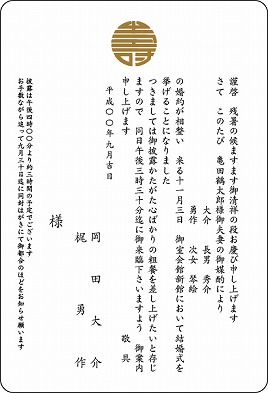 謹啓 残暑の候ますます御清祥の段お慶び申し上げます
さて このたび 亀田鶴太郎様御夫妻の御媒酌により
大介 長男 秀介
勇作 次女 琴絵
の婚約が相整い 来る十一月三日 御宝会館新館において結婚式を
挙げることになりました
つきましては御披露かたがた心ばかりの粗餐を差し上げたいと存じ
ますので 同日午後三時三十分迄に御来臨下さいますよう 御案内
申し上げます
敬具
平成〇〇年九月吉日
岡田大介
梶勇作
様
披露は午後四時〇〇分より約三時間の予定でございます
お手数ながら迫って九月三十日迄に同封はがきにて御都合のほどをお知らせ願います